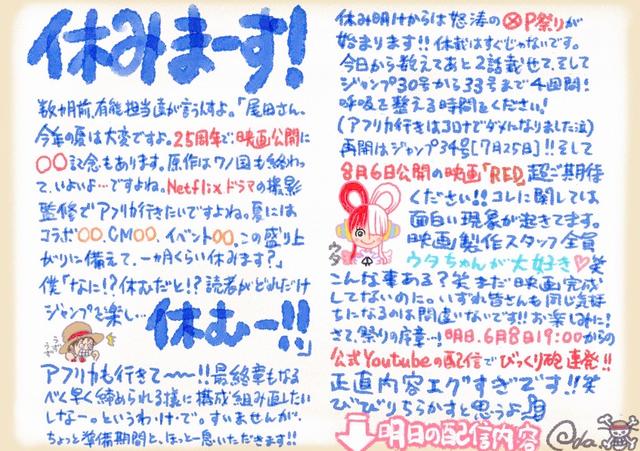 休みまーす!
数カ月前、有能担当直が言うんすよ。「尾田さん、
今年の夏は大変ですよ。25周年で、映画公開に
〇〇記念もあります。原作はワノ国も終わっ
て、いよいよ…ですよね。Netflixドラマの撮影
監修でアフリカ行きたいですよね。夏には
コラボ〇〇、CM〇〇、イベント〇〇。この盛り上
がりに備えて、一ヶ月くらい休みます?」
僕「なに!?休むだと!?読者がどれだけ
ジャンプを楽し…休むー!!」
アフリカも行きて〜〜!!最終章もなる
べく早く締められる様に構成組み直したい
しなー。というわ・け・で。すいませんが、
ちょっと準備期間と、ほっと一息いただきます!!
休み明けからは怒涛の㋻P祭りが
始まります!!休載はすぐじゃないです。
今日から数えてあと2話載せて、そして
ジャンプ30号から33号まで4週間!
呼吸を整える時間をください!
(アフリカ行きはコロナでダメになりました泣)
再開はジャンプ34号[7月25日]!!そして
8月6日公開の映画「RED」超ご期待
ください!!コレに関しては
面白い現象が起きてます。
映画製作スタッフ全員
ウタ
ウタちゃんが大好き♡笑
こんな事ある?笑まだ映画完成
してないのに。いずれ皆さんも同じ気持
ちになるのは間違いないです!!お楽しみに!
さて、祭りの序章…!明日、6月8日19:00からの
公式Youtubeの配信でびっくり砲連発!!
正直内容エグすぎです!!笑
びびりちらかすと思うよ
明日の配信内容
Oda.